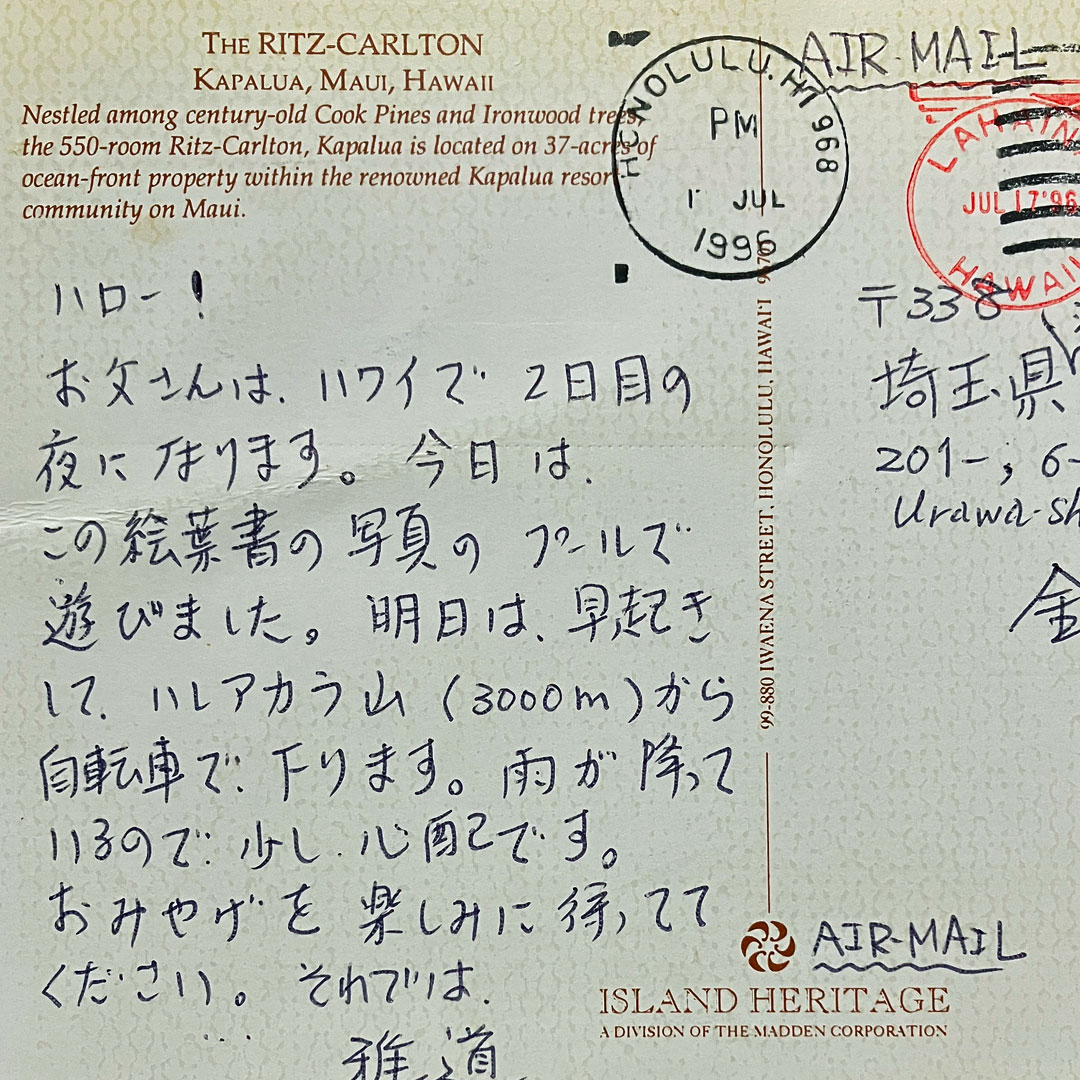 THE RITZ-CARLTON
KAPALUA, MAUI, HAWAII
Nestled among century-old Cook Pines and Ironwood trees,
the 550-room Ritz-Carlton, Kapalua is located on 37-acres of
ocean-front property within the renowned Kapalua resort
community on Maui.
ハロー!
お父さんは、ハワイで 2日目の
夜になります。今日は、
この絵葉書の写真の プールで
遊びました。明日は、早起き
して、ハレアカラ山(3000m)から
自転車で、下ります。雨が降って
いるので、少し、心配です。
おみやげを楽しみに待ってて
ください。それでは、
雅道
HONOLULU, HI 968
PM
1 JUL
1996
AIR-MAIL
LAHAINA
JUL 17 '96
HAWAII
99-880 IWAENA STREET, HONOLULU, HAWAI'I
〒338
埼玉県
201-, 6-
Urawa-sh
金
AIR-MAIL
ISLAND HERITAGE
A DIVISION OF THE MADDEN CORPORATION